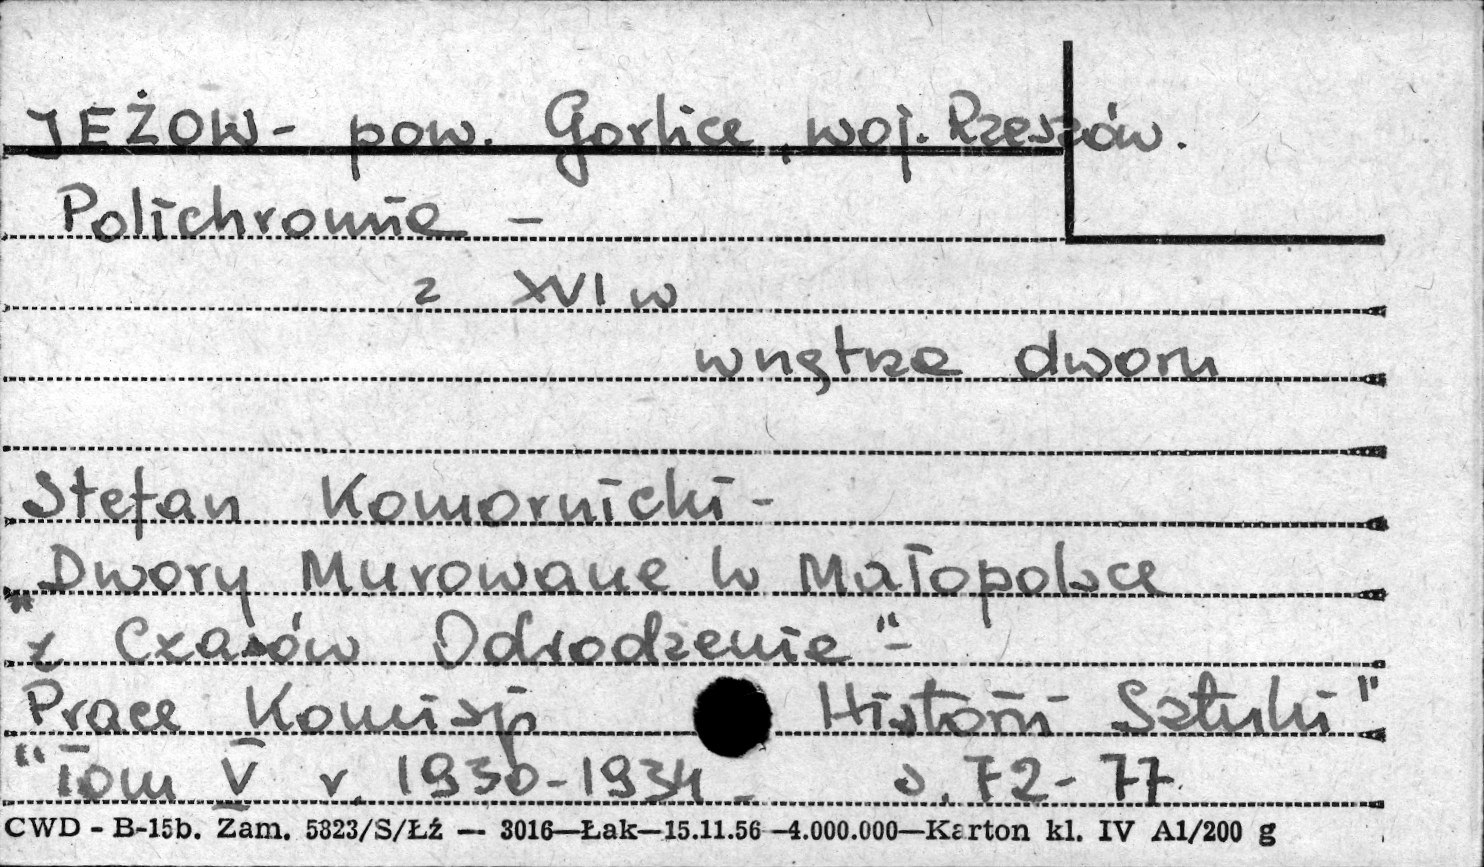 JEŻOW - pow. Gorlice, woj. Rzeszów.
Polichromie -
z XVI w
wnętrze dworu
Stefan Komornicki -
"Dwory Murowane w Małopolsce
z Czasów Odrodzenie" -
"Prace Komisji Historii Sztuki"
Tom V r. 1930-1934 - s. 72-77
CWD - B-15b. Zam. 5823/S/Łź — 3016—Łak—15.11.56—4.000.000—Karton kl. IV A1/200 g